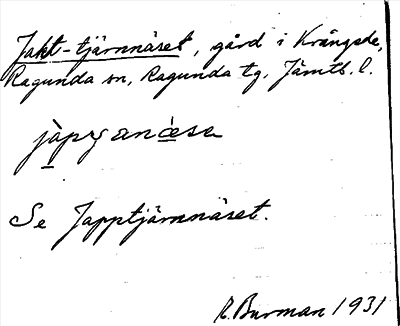 Jakt-tjärnnäset, gård i Krångede,
Ragunda sn, Ragunda tg, Jämtl. l.
Se Japptjärnnäset.
R. Burman 1931